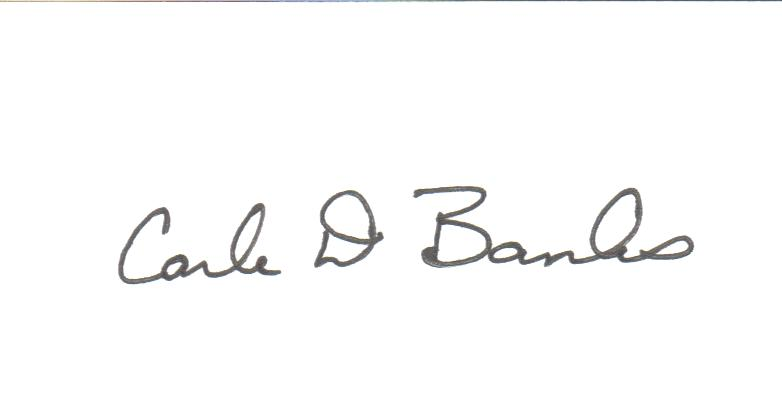 Carle D Banks